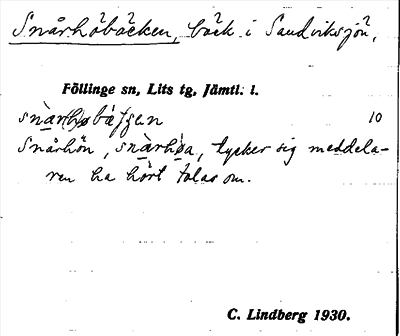 Snårhöbäcken, bäck i Sandviksjön,
Föllinge sn, Lits tg, Jämtl. l.
10
Snårhön, snàrhøa, tycker sig meddela-
ren ha hört talas om.
C. Lindberg 1930.